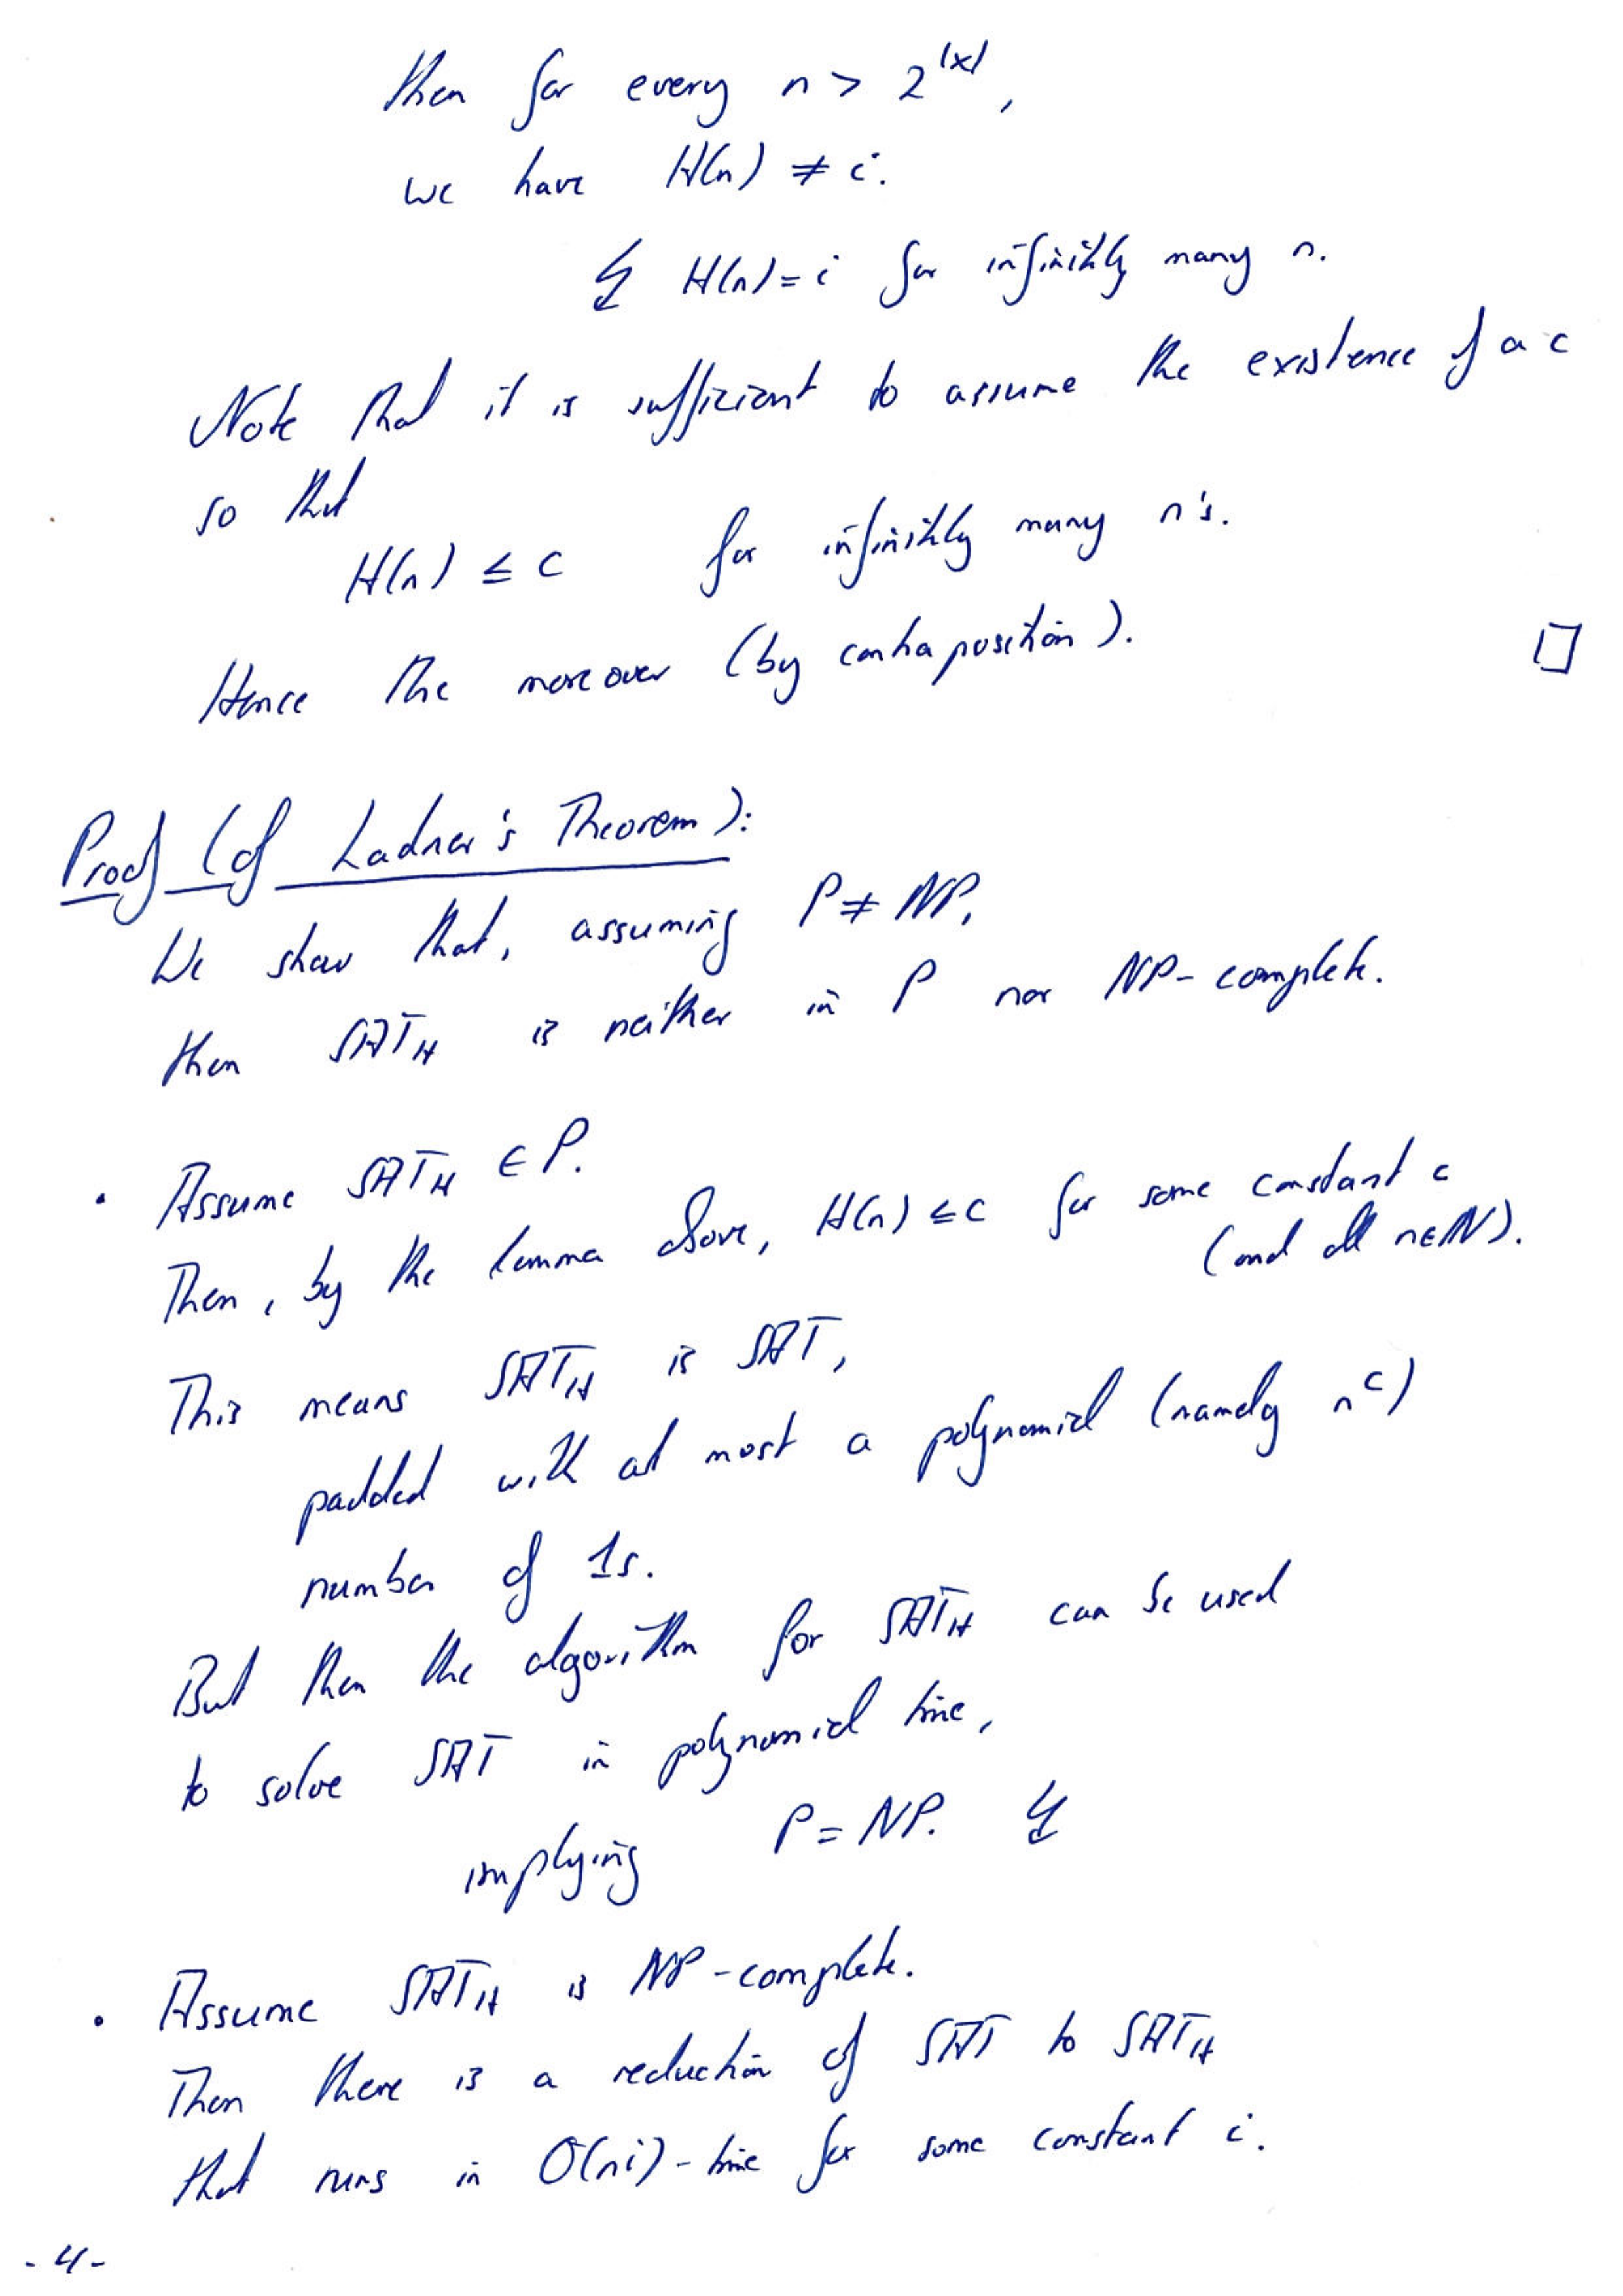 then for every n > 2^|x|,
we have H(n) ≠ i.
↯ H(n) = i for infinitely many n.
Note that it is sufficient to assume the existence of a c
so that
H(n) ≤ c for infinitely many n's.
Hence the moreover (by contraposition). □
Proof (of Ladner's Theorem):
We show that, assuming P ≠ NP,
then SAT_H is neither in P nor NP-complete.
• Assume SAT_H ∈ P.
Then, by the lemma above, H(n) ≤ c for some constant c
(and all n∈ℕ).
This means SAT_H is SAT,
padded with at most a polynomial (namely n^c)
number of 1s.
But then the algorithm for SAT_H can be used
to solve SAT in polynomial time,
implying P = NP. ↯
• Assume SAT_H is NP-complete.
Then there is a reduction of SAT to SAT_H
that runs in O(n^i)-time for some constant i.
- 4 -